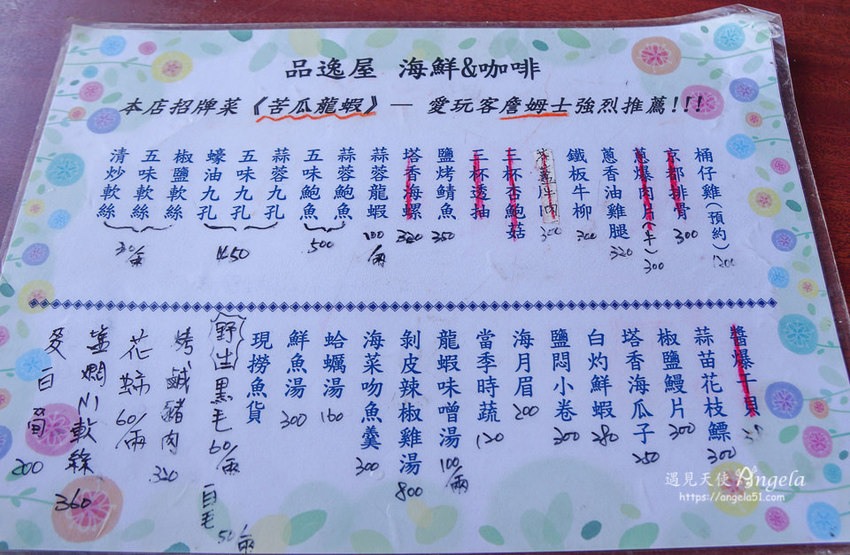 品逸屋 海鮮&咖啡
本店招牌菜《苦瓜龍蝦》— 愛玩客詹姆士強烈推薦!!!
桶仔雞(預約) 1200
京都排骨 300
蔥爆肉片(牛) 300
蔥香油雞腿 320
鐵板牛柳 300
300
三杯杏鮑菇
三杯透抽
鹽烤鯖魚 350
塔香海螺 320
蒜蓉龍蝦 100/兩
蒜蓉鮑魚
五味鮑魚
500
蒜蓉九孔
五味九孔
蠔油九孔
450
椒鹽軟絲
五味軟絲
清炒軟絲
30/兩
醬爆干貝
蒜苗花枝鰾 300
椒鹽鰻片 300
塔香海瓜子 250
白灼鮮蝦 280
鹽悶小卷 300
海月眉 200
當季時蔬 120
龍蝦味噌湯 100/兩
剝皮辣椒雞湯 800
海菜吻魚羹 300
蛤蠣湯 160
鮮魚湯 300
現撈魚貨
野生黑毛 60/兩
白毛 50/兩
烤鹹豬肉 320
花 60/兩
軟絲 360
茭白筍 200
遇見天使 Angela
https://angela51.com